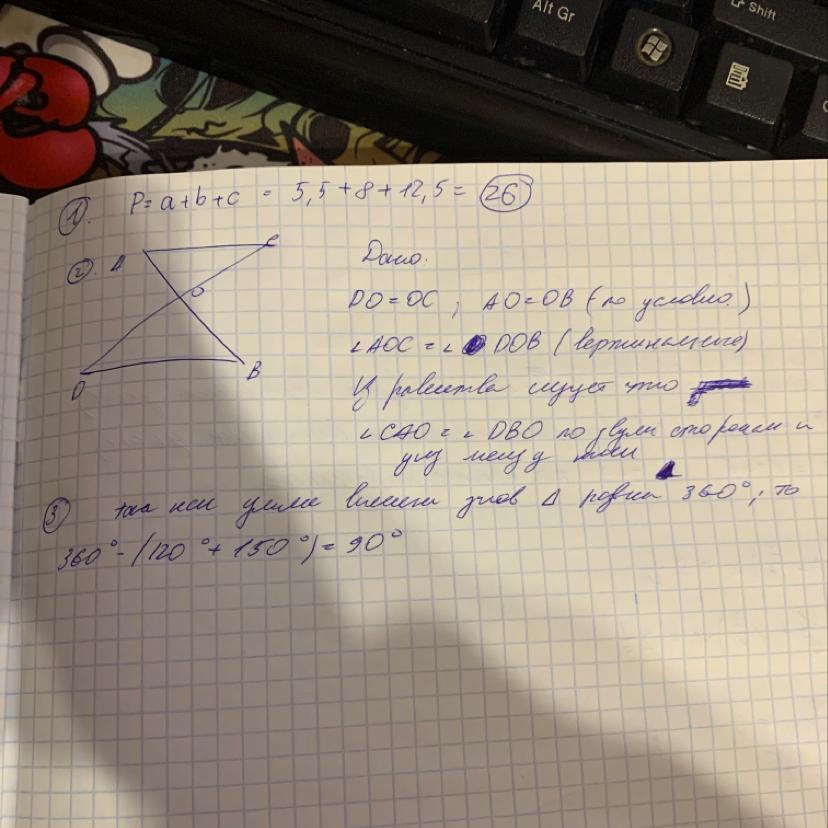 Alt Gr
Shift
1). P = a + b + c = 5,5 + 8 + 12,5 = 26
2). A
C
O
D
B
Дано.
DO = OC ; AO = OB (по условию.)
∠AOC = ∠ DOB (вертикальные)
Из равенства следует что
∠CAO = ∠ DBO по двум сторонам и
углу между ними
3) так как сумма внешних углов Δ равна 360°, то
360° - (120° + 150°) = 90°